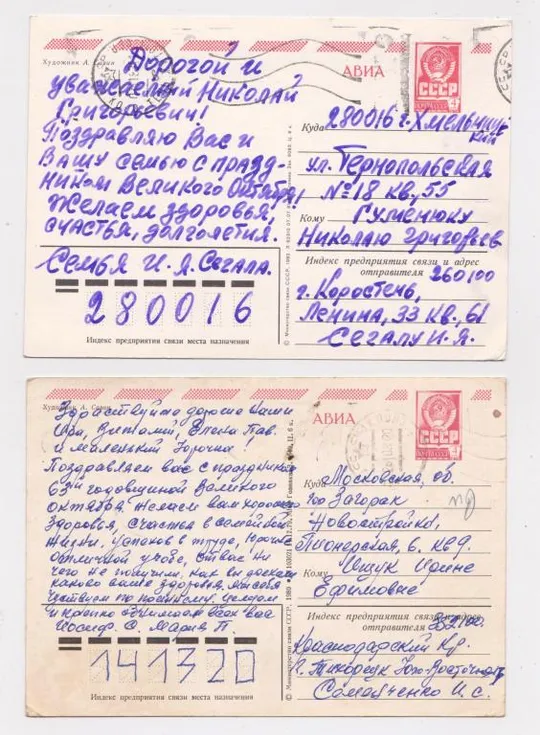 Художник А. Савин
АВИА
СССР
Дорогой и
уважаемый Николай
Григорьевич!
Поздравляю Вас и
Вашу семью с празд-
ником Великого Октября,
Желаем здоровья,
счастья, долголетия.
Семья И. Я. Сегала.
280016
Индекс предприятия связи места назначения
Куда 280016 г. Хмельниц
кий
ул. Тернопольская
№ 18 кв. 55
Кому Гуменюку
Николаю Григорьев
Индекс предприятия связи и адрес
отправителя 260100
г. Коростень,
Ленина, 33 кв. 61
Сегалу И. Я.
Художник А. Савин
АВИА
СССР
Здравствуйте дорогие наши
Ира, Виталий, Елена Пав.
и маленький Юрочка!
Поздравляем вас с праздником
63ей годовщиной Великого
Октября. Желаем вам хорошего
Здоровья, Счастья в семейной
жизни, успехов в труде, Юрочке
отличной учобе,
чего не получим, как вы доехали
каково ваше здоровья,
Целуем
и крепко обнимаем всех вас
Иосиф С. Мария П.
141320
Индекс предприятия связи места назначения
Куда Московская, об.
Загорск
Новостройка,
Пионерская, 6. кв 9.
Кому Ищук Ирине
Ефимовне
Индекс предприятия связи и адрес
отправителя
Краснодарский Кр.
г. Тихорецк Юго-Восточная
И. С.